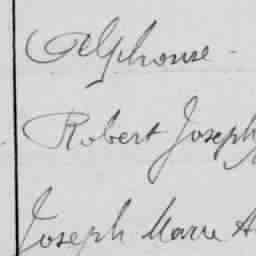 Alphonse -
Robert Joseph
Joseph Marie A